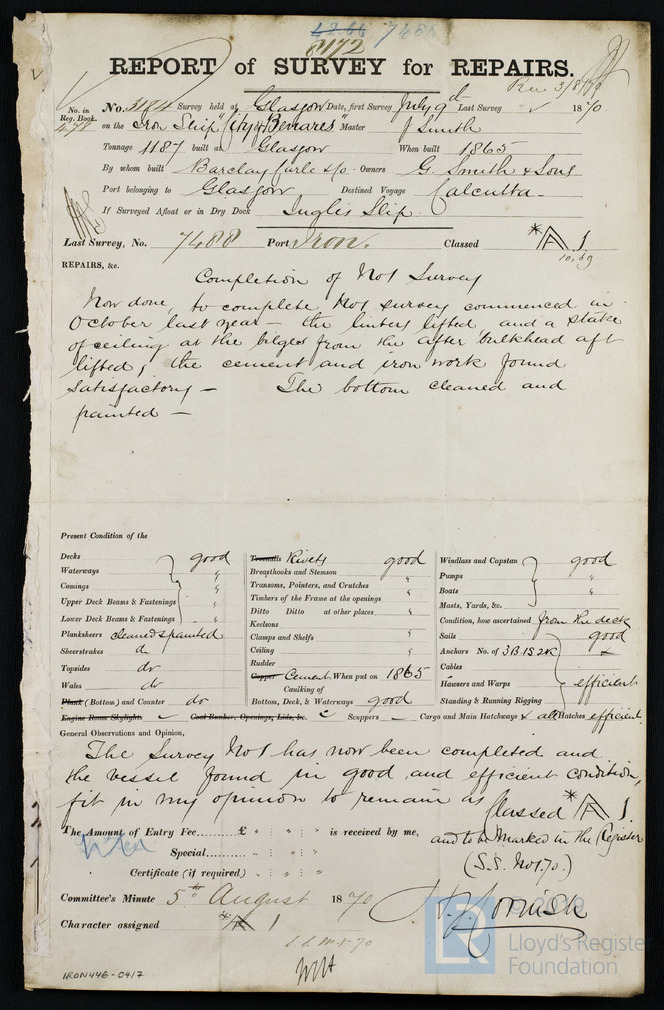 8172
REPORT of SURVEY for REPAIRS.
Rec 3/8/70
No. in Reg. Book. 477
No. 3184 Survey held at Glasgow Date, first Survey July 9th Last Survey 1870
on the Iron Ship "City of Benares" Master J Smith
Tonnage 1187 built at Glasgow When built 1865
By whom built Barclay Curle & Co Owners G. Smith & Sons
Port belonging to Glasgow Destined Voyage Calcutta
If Surveyed Afloat or in Dry Dock Inglis Slip.
Last Survey, No. 7488 Port Iron. Classed *A 1
10,69
REPAIRS, &c.
Completion of No1 Survey
Now done, to complete No1 survey commenced in
October last year – the limbers lifted, and a strake
of ceiling at the bilges from the after bulkhead aft
lifted; the cement and iron work found
satisfactory – The bottom cleaned and
painted –
Present Condition of the
Decks good
Waterways "
Comings "
Upper Deck Beams & Fastenings "
Lower Deck Beams & Fastenings "
Planksheers cleaned & painted
Sheerstrakes do
Topsides do
Wales do
Plank (Bottom) and Counter do
Engine Room Skylights –
Treenails Rivets good
Breasthooks and Stemson "
Transoms, Pointers, and Crutches "
Timbers of the Frame at the openings "
Ditto Ditto at other places "
Keelsons "
Clamps and Shelfs "
Ceiling "
Rudder "
Copper Cement When put on 1865
Caulking of
Bottom, Deck, & Waterways good
Coal Bunker, Openings, Lids, &c. –
Scuppers –
Windlass and Capstan good
Pumps "
Boats "
Masts, Yards, &c. "
Condition, how ascertained from the deck
Sails good
Anchors No. of 3B.1S.2K &
Cables
Hawsers and Warps efficient
Standing & Running Rigging
Cargo and Main Hatchways & all Hatches efficient.
General Observations and Opinion,
The Survey No1 has now been completed and
the vessel found in good and efficient condition,
fit in my opinion to remain as Classed *A 1.
and to be Marked in the Register
(S.S. No1.70.)
The Amount of Entry Fee......... £ " : " : " is received by me,
Special......... " : " : "
Certificate (if required) ......... " : " : "
Committee's Minute 5th August 1870
Character assigned *A 1
J. P. Cornish
© 2019
LR
Lloyd's Register
Foundation
IRON446-0417